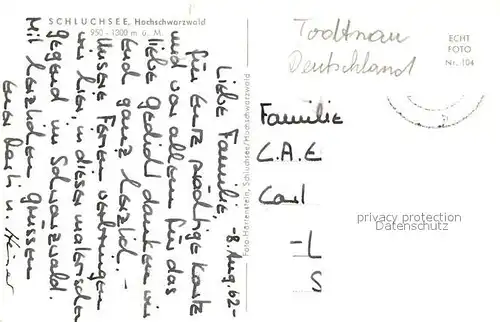 SCHLUCHSEE, Hochschwarzwald
950 - 1300 m ü. M.
-8. Aug. 62-
Liebe Familie,
für Eure prächtige Karte
und vor allem für das
liebe Gedicht danken wir
Euch ganz herzlich. -
Unsere Ferien verbringen
wir hier, in dieser malerischen
Gegend im Schwarzwald.
Mit herzlichen Grüssen
Eure
u.
Foto-Herrenstein, Schluchsee/Hochschwarzwald
Todtnau
Deutschland
ECHT
FOTO
Nr. 104
Familie
C.A.E
Carl
-L
S
privacy protection
Datenschutz